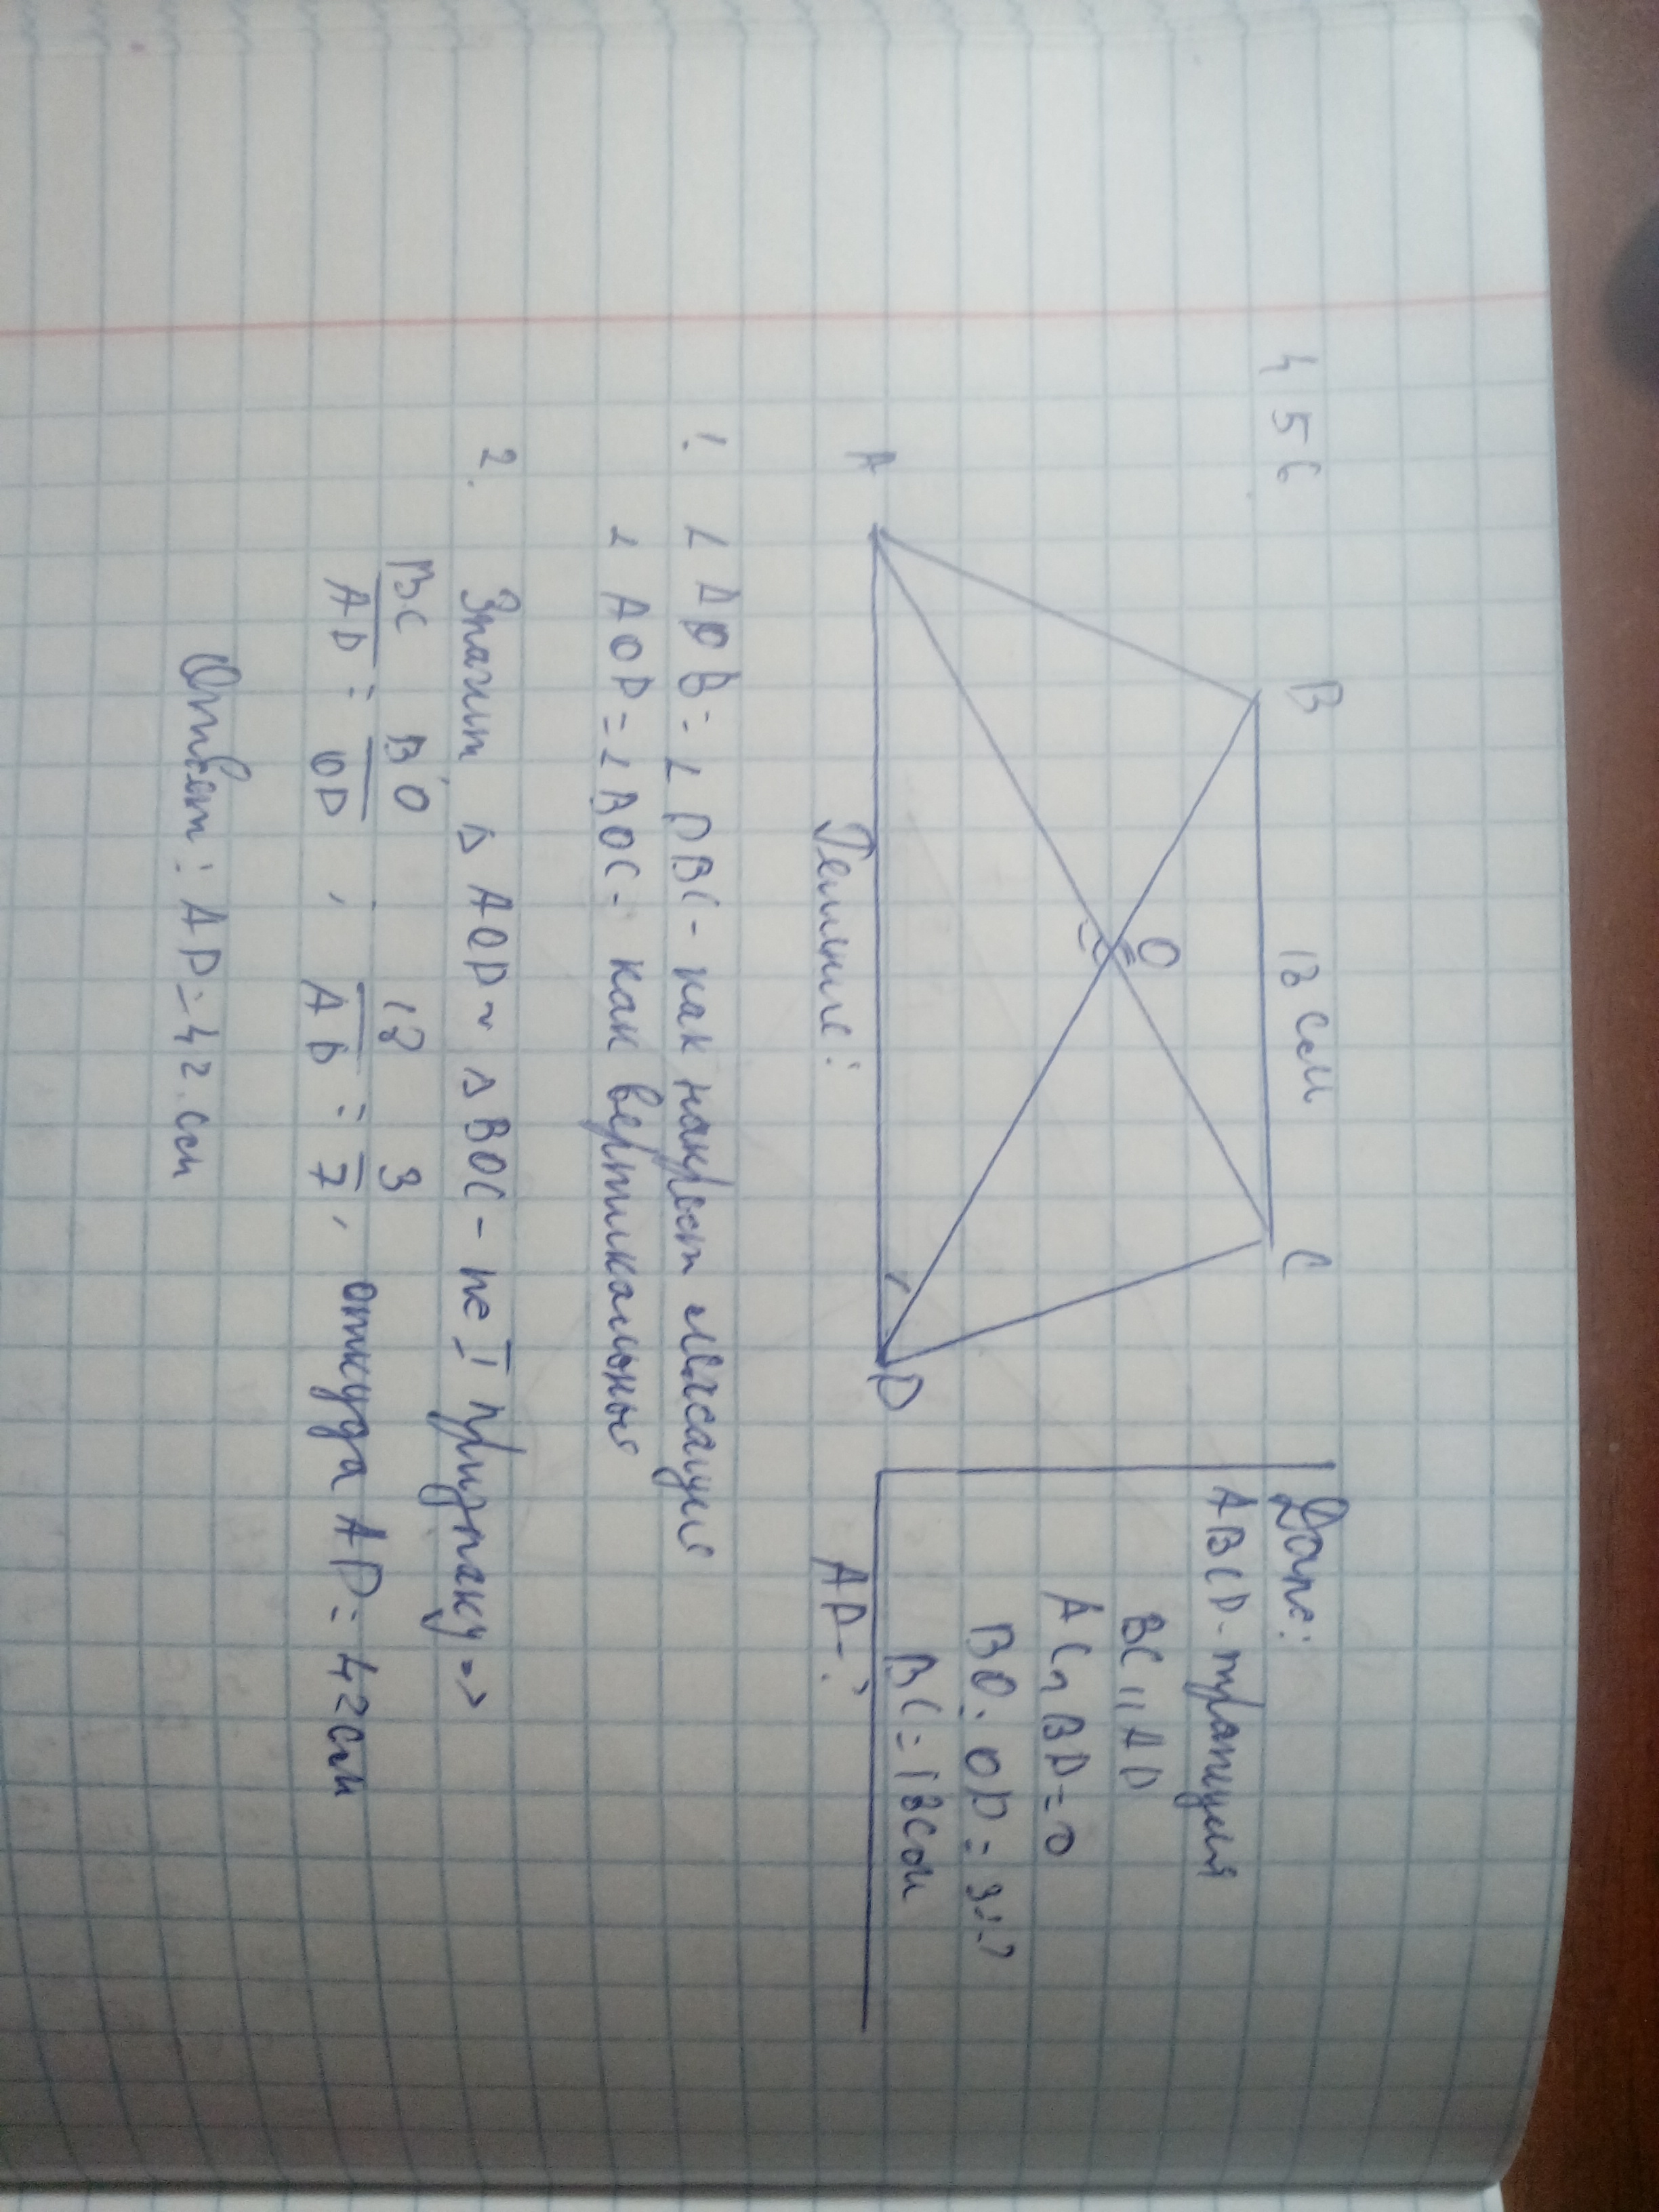 456
B 18 см C
O
A D
Дано:
ABCD - трапеция
BC || AD
AC ∩ BD = O
BO : OD = 3:7
BC = 18 см
AD - ?
Решение:
1. ∠ ADB = ∠ DBC - как накрест лежащие
∠ AOD = ∠ BOC - как вертикальные
2. Значит, Δ AOD ~ Δ BOC - по I признаку =>
BC/AD = BO/OD , 18/AD = 3/7 , откуда AD = 42 см
Ответ: AD = 42 см